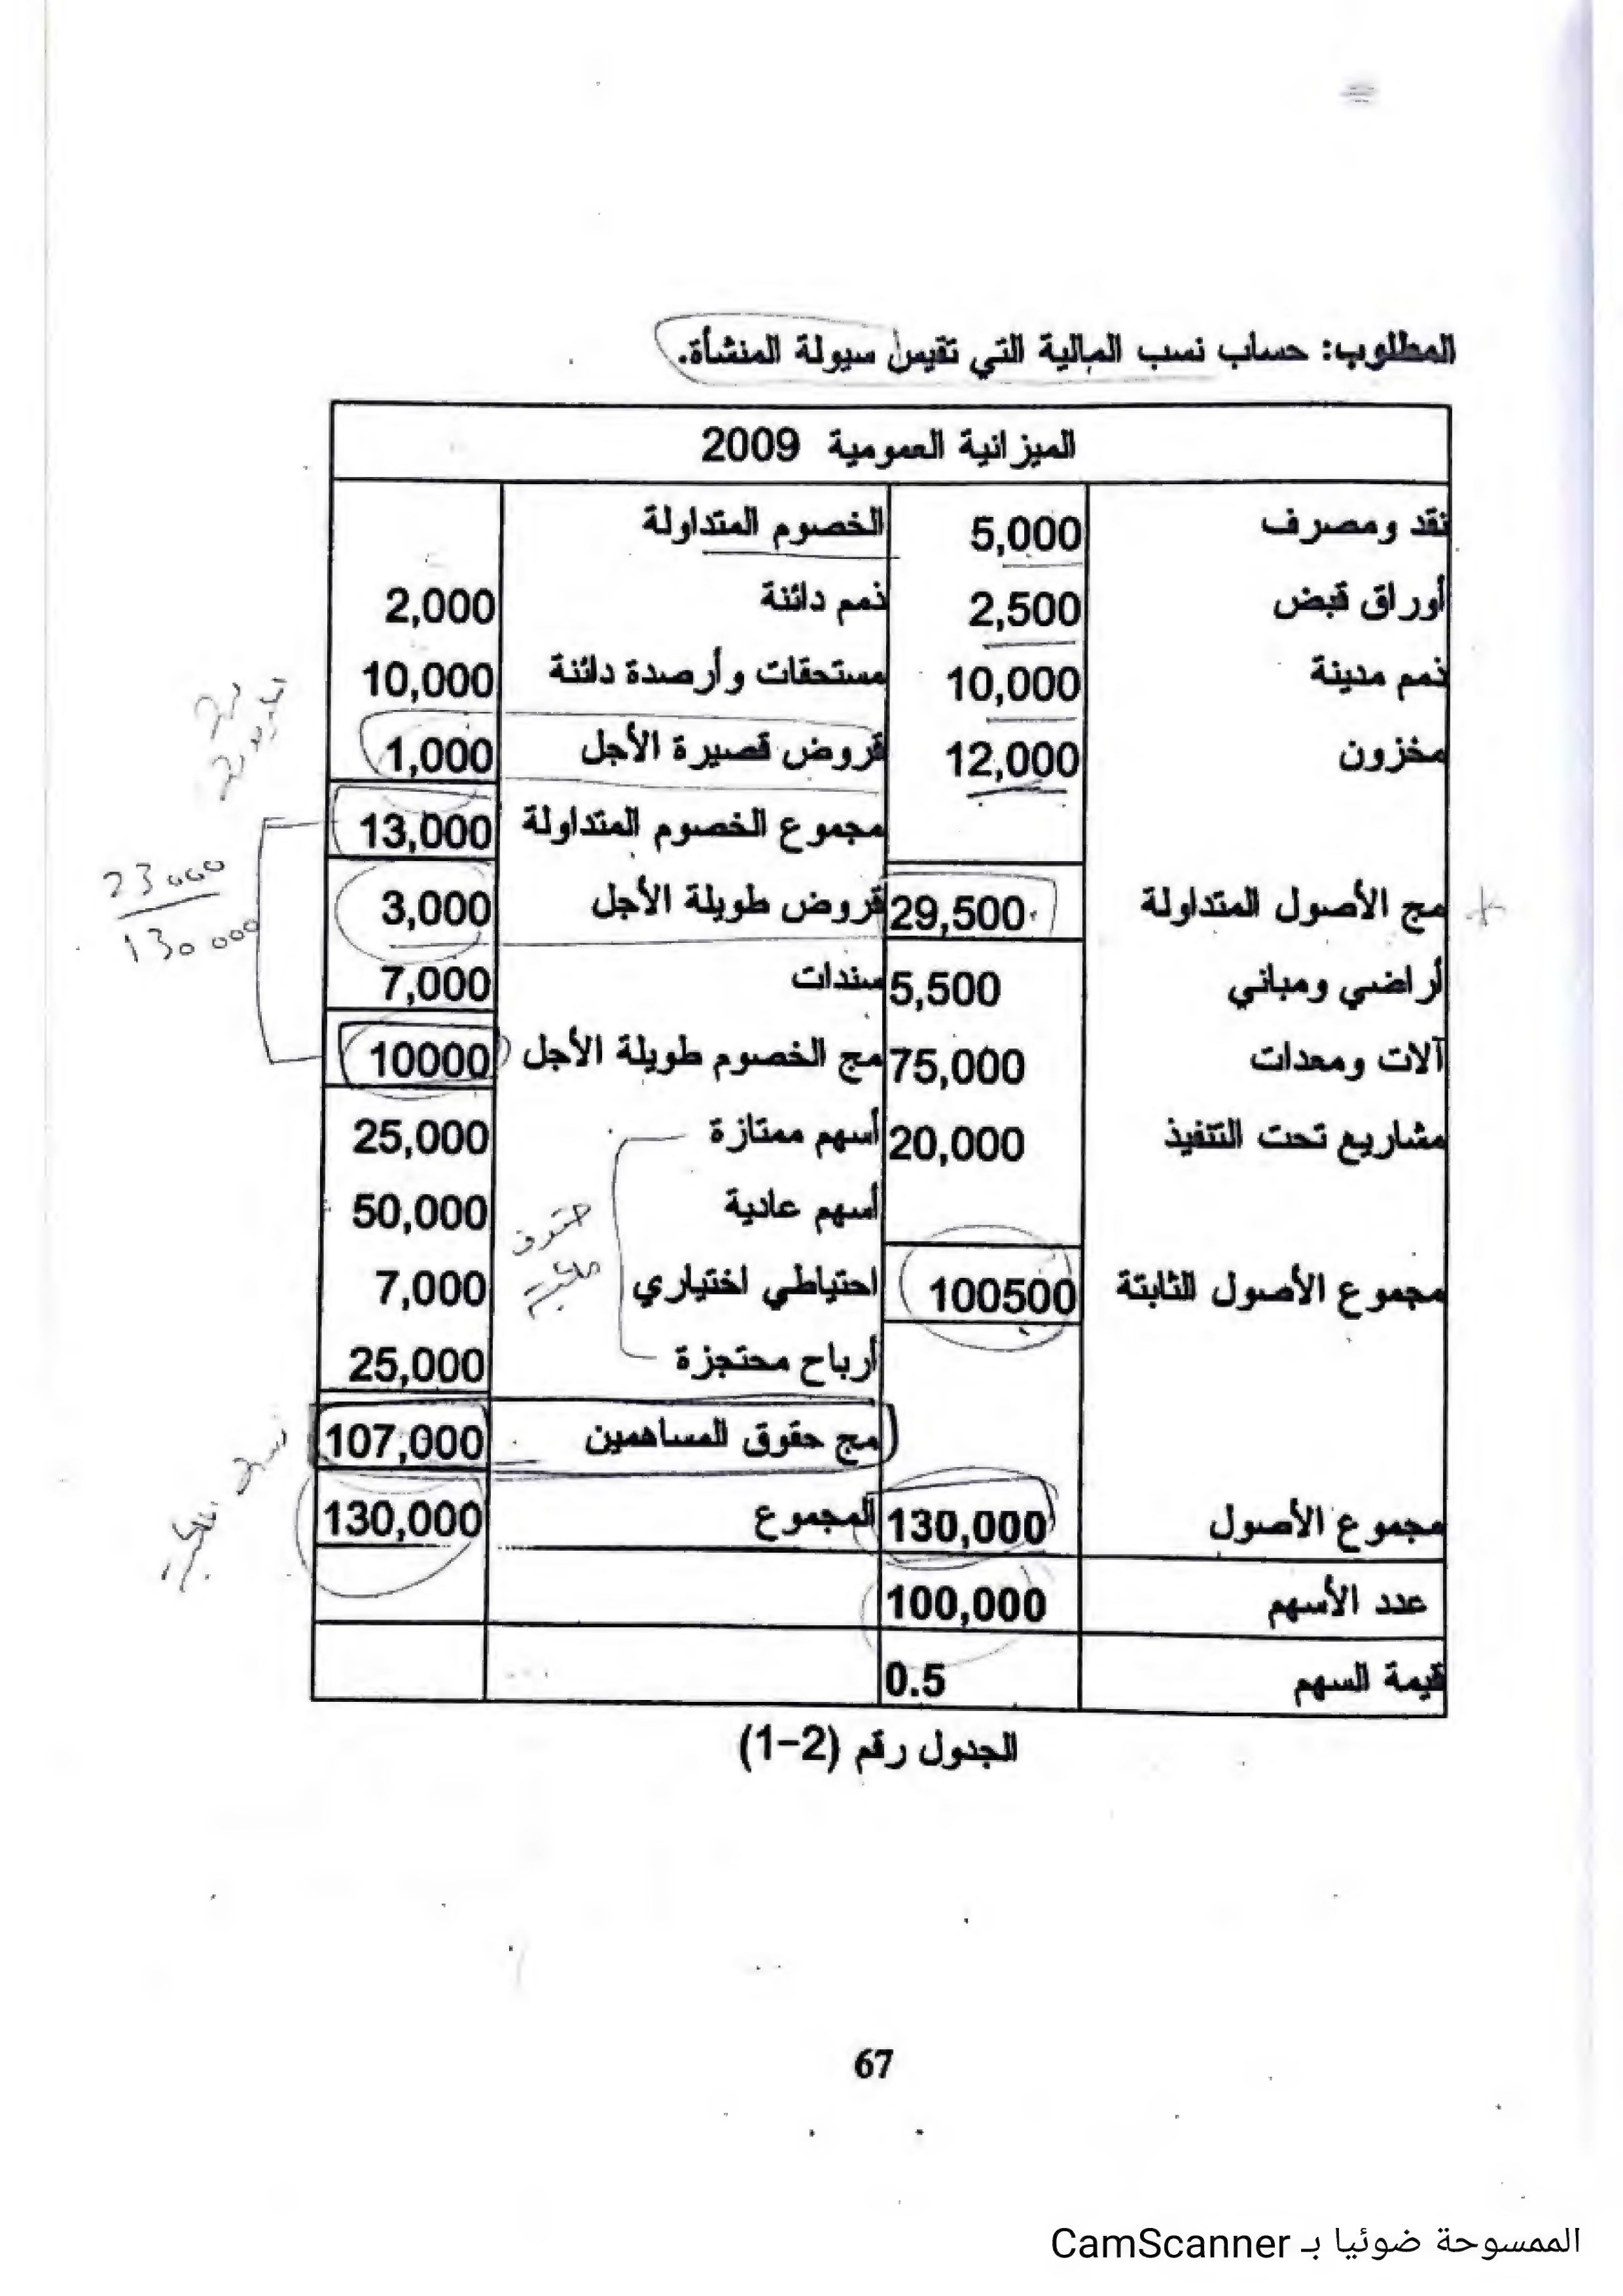 المطلوب: حساب نسب المالية التي تقيس سيولة المنشأة.
الميزانية العمومية 2009
نقد ومصرف 5,000 الخصوم المتداولة
أوراق قبض 2,500 ذمم دائنة 2,000
ذمم مدينة 10,000 مستحقات وأرصدة دائنة 10,000
مخزون 12,000 قروض قصيرة الأجل 1,000
مجموع الخصوم المتداولة 13,000
مج الأصول المتداولة 29,500 قروض طويلة الأجل 3,000
23000
130000
أراضي ومباني 5,500 سندات 7,000
آلات ومعدات 75,000 مج الخصوم طويلة الأجل 10000
مشاريع تحت التنفيذ 20,000 أسهم ممتازة 25,000
أسهم عادية 50,000
حقوق
ملكية
مجموع الأصول الثابتة 100500 احتياطي اختياري 7,000
أرباح محتجزة 25,000
مج حقوق المساهمين 107,000
مجموع الأصول 130,000 المجموع 130,000
عدد الأسهم 100,000
قيمة السهم 0.5
الجدول رقم (2-1)
67
الممسوحة ضوئيا بـ CamScanner